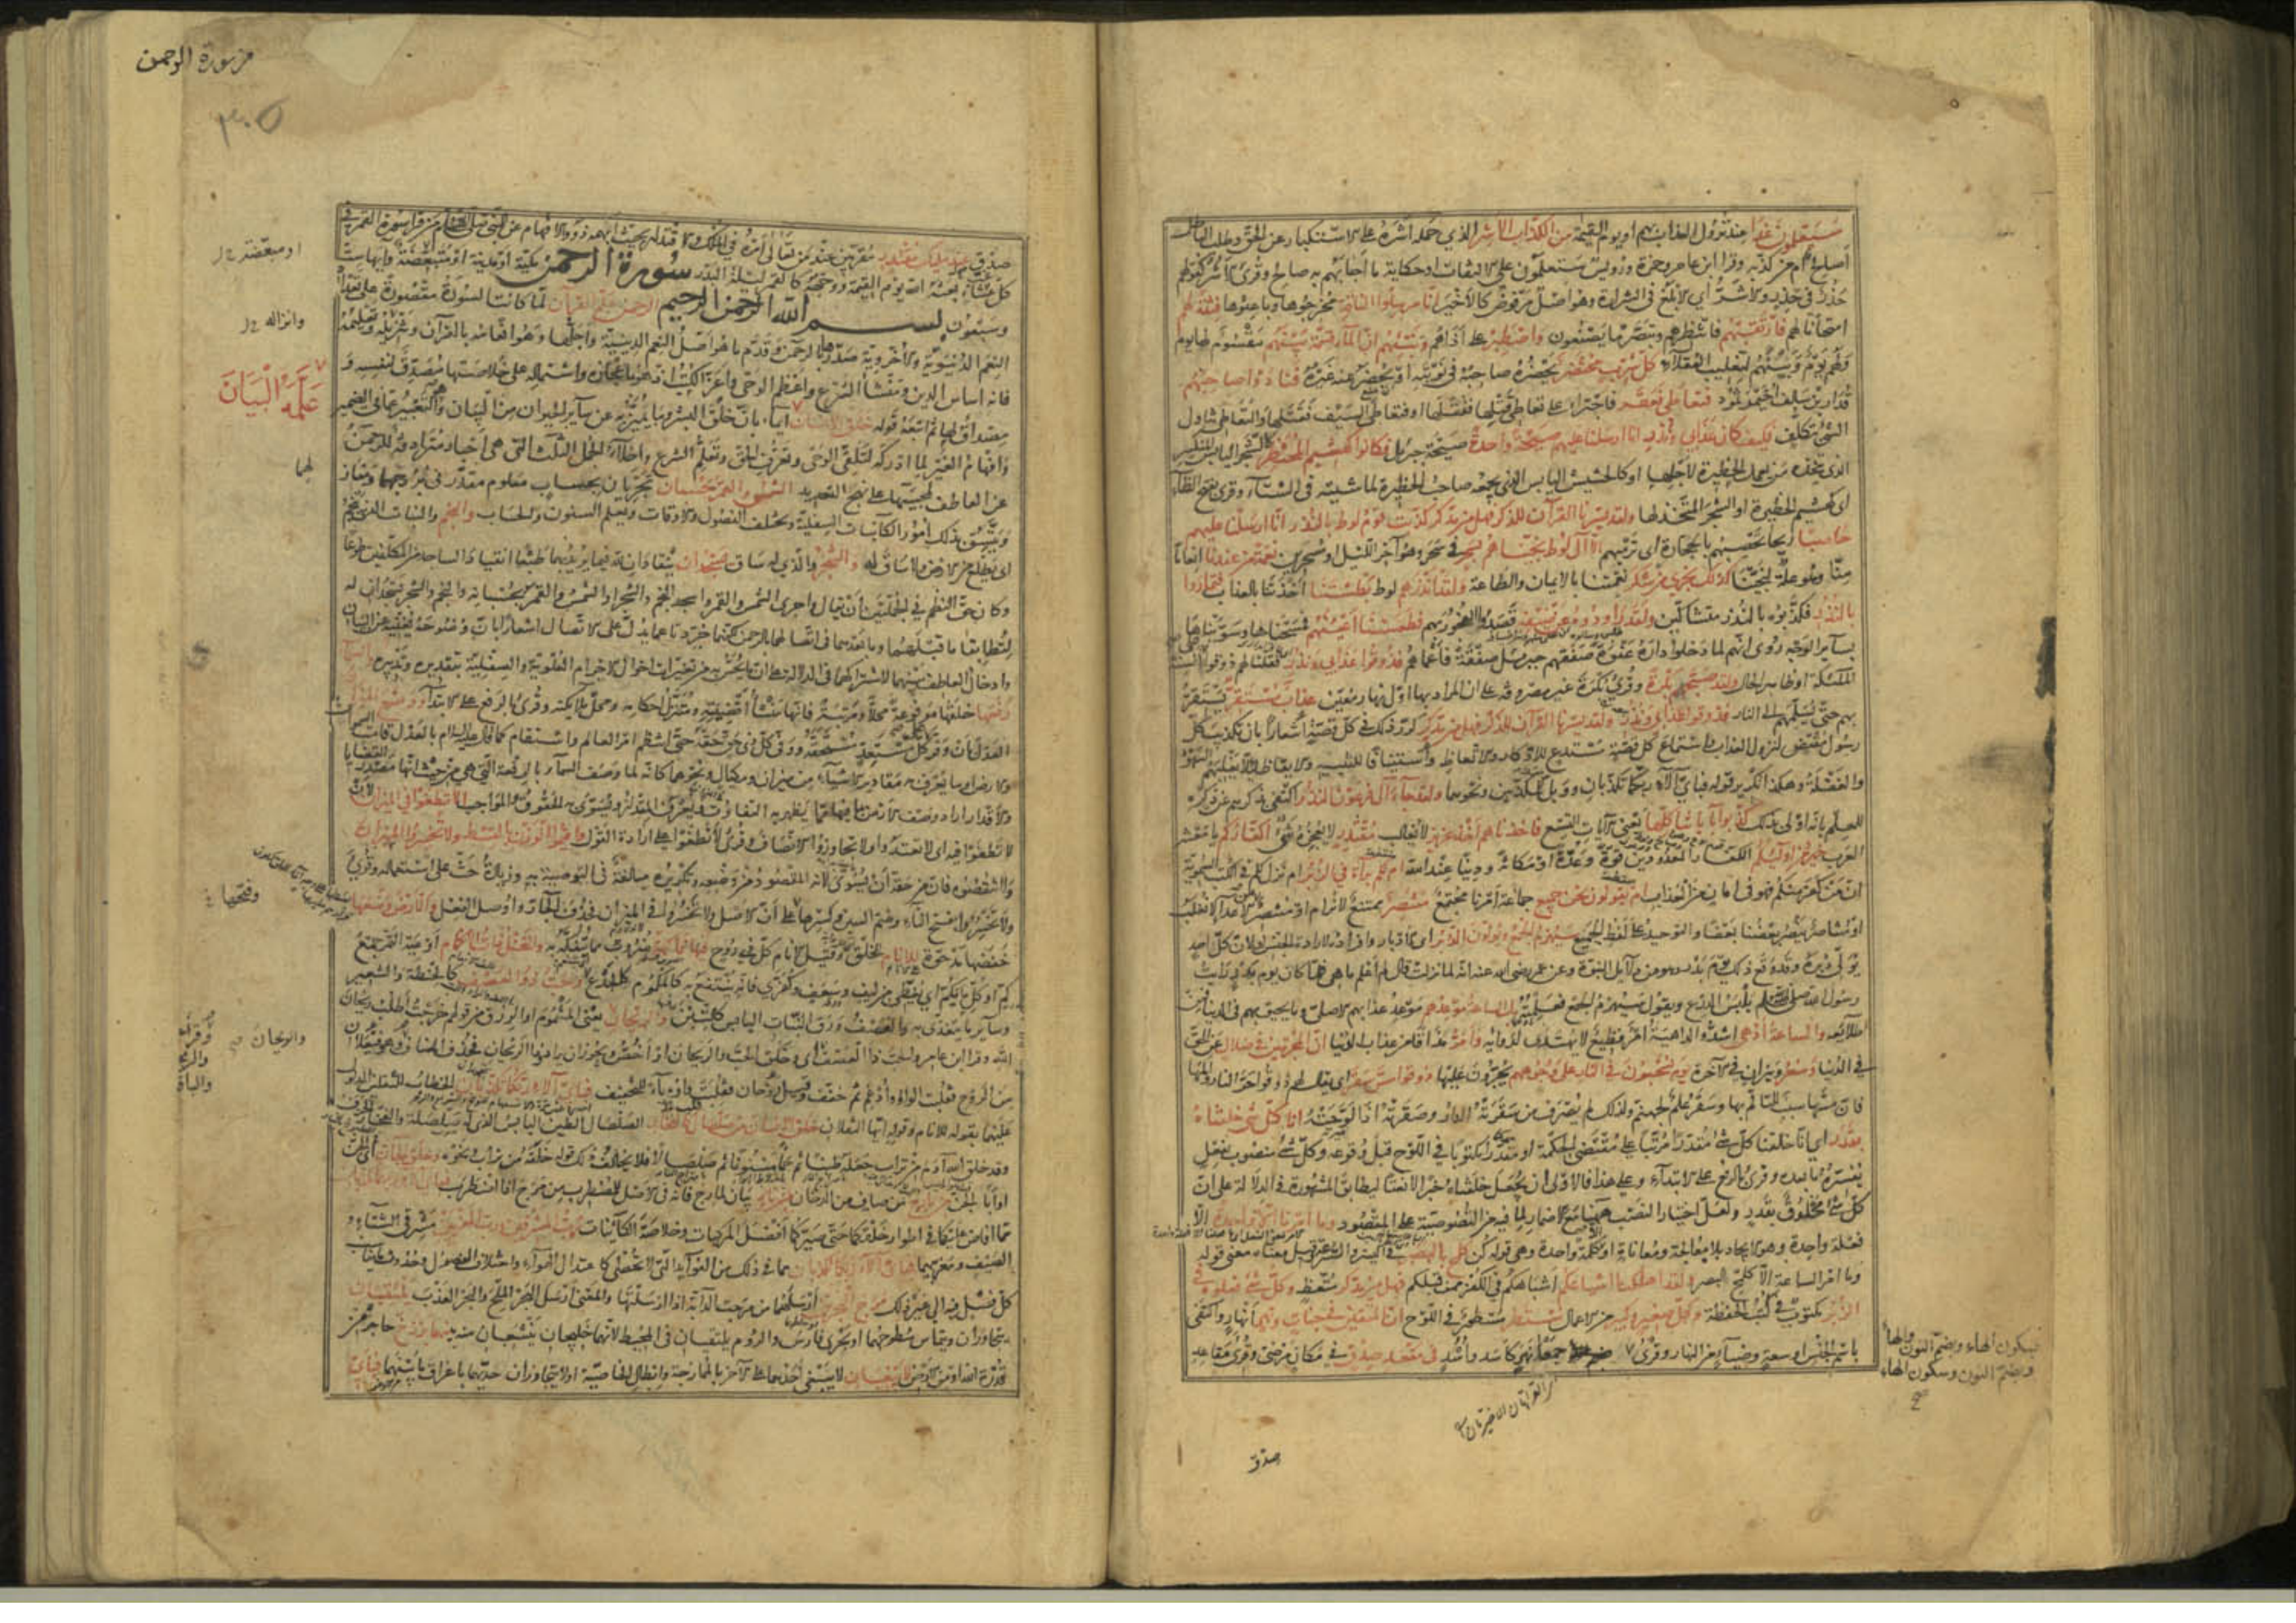 سَيَعْلَمُونَ غَدًا عند نزول العذاب بهم او يوم القيمة مَنِ الكَذَّابُ الاَشِر الذي حمله اشره على الاستكبار عن الحق وطلب الباطل
أصالح ام من كذبه وقرا ابن عامر وحمزة ورويس ستعلمون على الالتفات او حكاية ما اجابهم به صالح وقرئ الاشر كقولهم
حذر في حذر والاشر اى الابلغ في الشرارة وهو اصل مرفوض كالاخير انا مرسلوا الناقة مخرجوها وباعثوها فتنة لهم
امتحانا لهم فارتقبهم فانتظرهم وتبصر ما يصنعون واصطبر على اذاهم ونبئهم ان الماء قسمة بينهم مقسوم لها يوم
ولهم يوم وبينهم لتغليب العقلاء كل شرب محتضر يحضره صاحبه في نوبته او يحضر عنه غيره فنادوا صاحبهم
قدار بن سالف احيمر ثمود فتعاطى فعقر فاجترأ على تعاطى قتلها فقتلها او فتعاطى السيف فقتلها والتعاطى تناول
الشئ بتكلف فكيف كان عذابي ونذر انا ارسلنا عليهم صيحة واحدة صيحة جبريل فكانوا كهشيم المحتظر كالشجر اليابس المتكسر
الذى يتخذه من يعمل الحظيرة لاجلها او كالحشيش اليابس الذى يجمعه صاحب الحظيرة لماشيته في الشتاء وقرئ بفتح الظاء
اى كهشيم الحظيرة او الشجر المتخذ لها ولقد يسرنا القرآن للذكر فهل من مدكر كذبت قوم لوط بالنذر انا ارسلنا عليهم
حاصبا ريحا تحصبهم بالحجارة اى ترميهم الا آل لوط نجيناهم بسحر في سحر وهو آخر الليل او مسحرين نعمة من عندنا انعاما
منا وهو علة لنجينا كذلك نجزي من شكر نعمتنا بالايمان والطاعة ولقد انذرهم لوط بطشتنا اخذتنا بالعذاب فتماروا
بالنذر فكذبوه بالنذر متشاكين ولقد راودوه عن ضيفه قصدوا الفجور بهم فطمسنا اعينهم فمسحناها وسويناها
بسائر الوجه روى انهم لما دخلوا داره عنوة صفقهم جبريل صفقة فاعماهم فذوقوا عذابي ونذر فقلنا لهم ذوقوا على السنة
الملئكة او ظاهر الحال ولقد صبحهم بكرة وقرئ بكرة غير مصروفة على ان المراد بها اول نهار معين عذاب مستقر يستقر
بهم حتى يسلمهم الى النار فذوقوا عذابي ونذر ولقد يسرنا القرآن للذكر فهل من مدكر كرر ذلك في كل قصة اشعارا بان تكذيب كل
رسول مقتض لنزول العذاب واستماع كل قصة مستدع للاذكار والاتعاظ واستينافا للتنبيه والايقاظ لئلا يغلبهم السهو
والغفلة وهكذا تكرير قوله فباي آلاء ربكما تكذبان وويل يومئذ للمكذبين ونحوهما ولقد جاء آل فرعون النذر اكتفى بذكرهم عن ذكره
للعلم بانه اولى بذلك كذبوا بآياتنا كلها يعنى الآيات التسع فاخذناهم اخذ عزيز لا يغالب مقتدر لا يعجزه شئ اكفاركم يا معشر
العرب خير من اولئكم الكفار المعدودين قوة وعدة او مكانة ودينا عند الله ام لكم براءة في الزبر ام نزل لكم في الكتب السماوية
ان من كفر منكم فهو في امان من العذاب ام يقولون نحن جميع جماعة امرنا مجتمع منتصر ممتنع لا نرام او منتصر من الاعداء لا نغلب
او متناصر ينصر بعضنا بعضا والتوحيد على لفظ الجميع سيهزم الجمع ويولون الدبر اى الادبار وافراده لارادة الجنس او لان كل احد
يولى دبره وقد وقع ذلك يوم بدر وهو من دلائل النبوة وعن عمر رضى الله عنه انه لما نزلت قال لم اعلم ما هي فلما كان يوم بدر رايت
رسول الله صلى الله عليه وسلم يلبس الدرع ويقول سيهزم الجمع فعلمته بل الساعة موعدهم موعد عذابهم الاصلى وما يحيق بهم في الدنيا فمن
طلايعه والساعة ادهى اشد والداهية امر فظيع لا يهتدى لدوائه وامر مذاقا من عذاب الدنيا ان المجرمين في ضلال عن الحق
في الدنيا وسعر ونيران في الآخرة يوم يسحبون في النار على وجوههم يجرون عليها ذوقوا مس سقر اى يقال لهم ذوقوا حر النار والمها
فان مسها سبب للتألم بها وسقر علم لجهنم ولذلك لم يصرف من سقرته النار وصقرته اذا لوحته انا كل شئ خلقناه
بقدر اى انا خلقنا كل شئ مقدرا مرتبا على مقتضى الحكمة او مقدرا مكتوبا في اللوح قبل وقوعه وكل شئ منصوب بفعل
يفسره ما بعده وقرئ بالرفع على الابتداء وعلى هذا فالاولى ان يجعل خلقناه خبرا لا نعتا ليطابق المشهورة في الدلالة على ان
كل شئ مخلوق بقدر ولعل اختيار النصب ههنا مع الاضمار لما فيه من النصوصية على المقصود وما امرنا الا واحدة الا
فعلة واحدة وهو الايجاد بلا معالجة ومعاناة او كلمة واحدة وهي قوله كن كلمح بالبصر في اليسر والسرعة وقيل معناه معنى قوله
وما امر الساعة الا كلمح البصر ولقد اهلكنا اشياعكم اشباهكم في الكفر ممن قبلكم فهل من مدكر متعظ وكل شئ فعلوه في
الزبر مكتوب في كتب الحفظة وكل صغير وكبير من الاعمال مستطر مسطور في اللوح ان المتقين في جنات ونهر انهار واكتفى
باسم الجنس او سعة او ضياء من النهار وقرئ جمع نهر كاسد واسد في مقعد صدق في مكان مرضى وقرئ مقاعد
فسكون الهاء وبضم النون والهاء
وبضم النون وسكون الهاء
صدق
من سورة الرحمن
٣٠٥
صدق عند مليك مقتدر مقربين عند من تعالى امره في الملك والاقتدار بحيث ابهمه ذوو الافهام عن النبي صلى الله عليه وسلم من قرا سورة القمر في
كل غب بعثه الله يوم القيمة ووجهه كالقمر ليلة البدر سورة الرحمن مكية او مدنية او متبعضة وآيها ست
وسبعون بسم الله الرحمن الرحيم الرحمن علم القرآن لما كانت السورة مقصورة على تعداد
النعم الدنيوية والاخروية صدرها بالرحمن وقدم ما هو اصل النعم الدينية واجلها وهو انعامه بالقرآن وتنزيله وتعليمه
فانه اساس الدين ومنشأ الشرع واعظم الوحى واعز الكتب اذ هو باعجازه واشتماله على خلاصتها مصدق لنفسه و
مصداق لها ثم اتبعه قوله خلق الانسان ايماء بان خلق البشر وما يميز به عن سائر الحيوان من البيان وهو التعبير عما في الضمير
وافهام الغير لما ادركه لتلقى الوحى وتعرف الحق وتعلم الشرع واخلاء الجمل الثلث التى هى اخبار مترادفة للرحمن
عن العاطف لمجيئها على نهج التعديد الشمس والقمر بحسبان يجريان بحساب معلوم مقدر في بروجهما ومنازلهما
ويتسق بذلك امور الكائنات السفلية وتختلف الفصول والاوقات ويعلم السنون والحساب والنجم والنبات الذى ينجم
اى يطلع من الارض ولا ساق له والشجر والذي له ساق يسجدان ينقادان لله فيما يريد بهما طبعا انقياد الساجد من المكلفين طوعا
وكان حق النظم في الجملتين ان يقال واجرى الشمس والقمر واسجد النجم والشجر او الشمس والقمر بحسبانه والنجم والشجر يسجدان له
لتطابقا ما قبلهما وما بعدهما في اتصالهما بالرحمن لكنهما جردتا عما يدل على الاتصال اشعارا بان وضوحه يغنيه عن البيان
وادخال العاطف بينهما لاشتراكهما في الدلالة على ان ما يحس به من تغيرات احوال الاجرام العلوية والسفلية بتقديره وتدبيره والسماء
رفعها خلقها مرفوعة محلا ومرتبة فانها منشأ اقضيته ومتنزل احكامه ومحل ملائكته وقرئ بالرفع على الابتداء ووضع الميزان
العدل بان وفر على كل مستعد مستحقه ووفى كل ذى حق حقه حتى انتظم امر العالم واستقام كما قال عليه السلام بالعدل قامت السموات
والارض او ما يعرف به مقادير الاشياء من ميزان ومكيال ونحوهما كانه لما وصف السماء بالرفعة التى هى من حيث انها مصدر القضايا
والاقدار اراد وصف الارض بما فيها مما يظهر به التفاوت ويعرف به المقدار ويسوى به الحقوق والمواجب الا تطغوا في الميزان لان
لا تطغوا فيه اى لا تعتدوا ولا تجاوزوا الانصاف وقرئ لا تطغوا على ارادة القول واقيموا الوزن بالقسط ولا تخسروا الميزان
ولا تنقصوه فان من حقه ان يسوى لانه المقصود من وضعه وتكريره مبالغة في التوصية به وزيادة حث على استعماله وقرئ
ولا تخسروا بفتح التاء وضم السين وكسرها على ان الاصل ولا تخسروا في الميزان فحذف الجار واوصل الفعل والارض وضعها
خفضها مدحوة للانام للخلق وقيل الانام كل ذى روح فيها فاكهة ضروب مما يتفكه به والنخل ذات الاكمام اوعية التمر جمع
كم او كل ما يكم اى يغطى من ليف وسعف وكفرى فانه ينتفع به كالمكموم كالجذع والحب ذو العصف كالحنطة والشعير
وسائر ما يتغذى به والعصف ورق النبات اليابس كالتبن والريحان يعنى المشموم او الرزق من قولهم خرجت اطلب ريحان
الله وقرا ابن عامر والحب ذا العصف اى وخلق الحب والريحان او اخص ويجوز ان يراد وذا الريحان فحذف المضاف وهو فيعلان
من الروح فقلبت الواو وادغم ثم خفف وقيل روحان فقلبت واوه ياء للتخفيف فبأى آلاء ربكما تكذبان الخطاب للثقلين المدلول
عليهما بقوله للانام وقوله ايها الثقلان خلق الانسان من صلصال كالفخار الصلصال الطين اليابس الذى له صلصلة والفخار الخزف
وقد خلق الله آدم من تراب جعله طينا ثم حمأ مسنونا ثم صلصالا فلا يخالف ذلك قوله خلقه من تراب ونحوه وخلق الجان الجن
او ابا الجن من مارج من صاف من الدخان من نار بيان لمارج فانه في الاصل للمضطرب من مرج اذا اضطرب فبأى آلاء ربكما تكذبان
مما افاض عليكما في اطوار خلقتكما حتى صيركما افضل المركبات وخلاصة الكائنات رب المشرقين ورب المغربين مشرقى الشتاء و
الصيف ومغربيهما فبأى آلاء ربكما تكذبان مما في ذلك من الفوائد التى لا تحصى كاعتدال الهواء واختلاف الفصول وحدوث ما يناسب
كل فصل فيه الى غير ذلك مرج البحرين ارسلهما من مرجت الدابة اذا ارسلتها والمعنى ارسل البحر الملح والبحر العذب يلتقيان
يتجاوران ويتماس سطوحهما او بحرى فارس والروم يلتقيان في المحيط لانهما خليجان ينشعبان منه بينهما برزخ حاجز من
قدرة الله او من الارض لا يبغيان لا يبغى احدهما على الآخر بالممازجة وابطال الخاصية او لا يتجاوزان حديهما باغراق ما بينهما فبأى
او متبعضة
وانزاله
عَلَّمَهُ الْبَيَانَ
لهما
وفتحها
والريحان